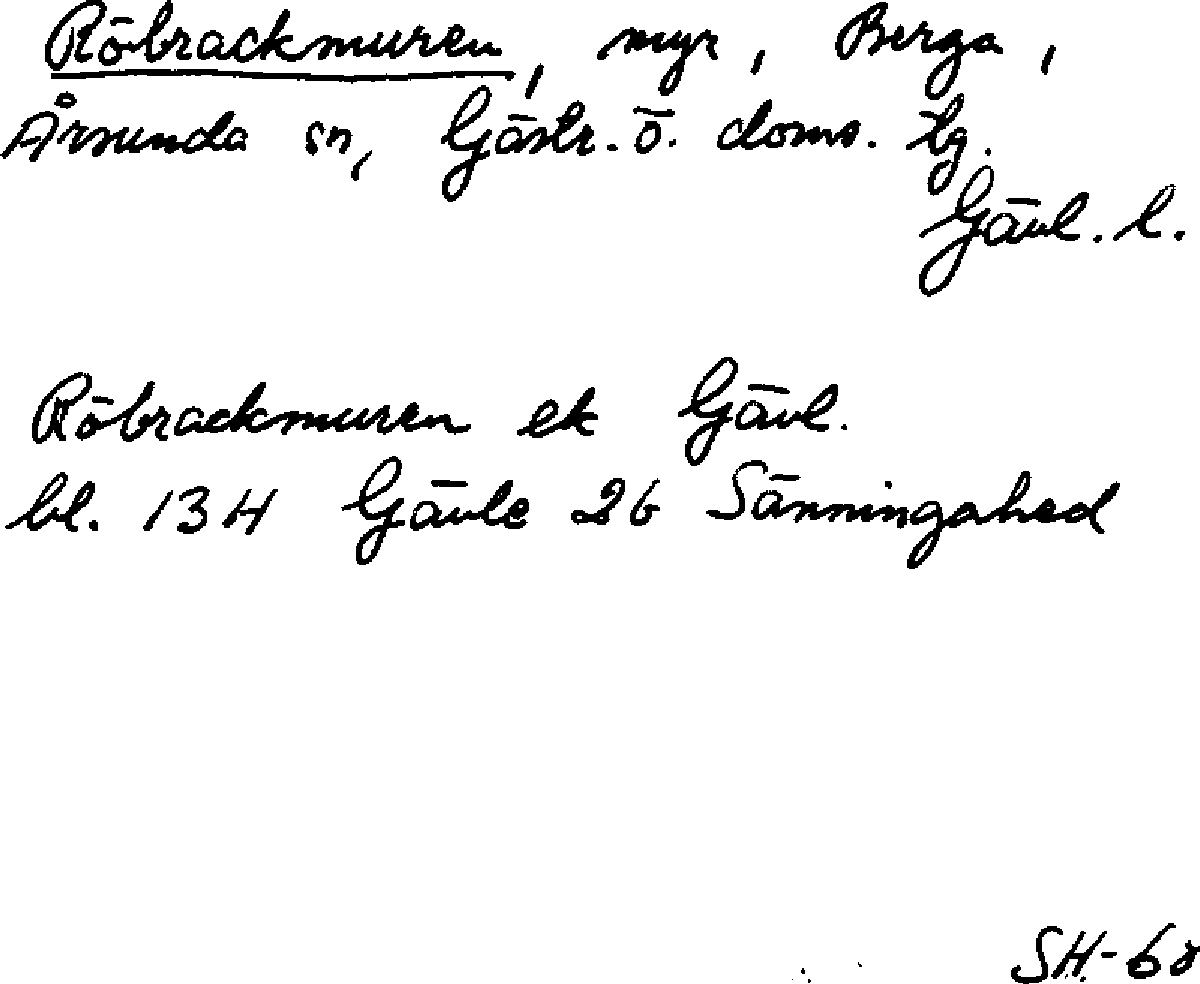 Röbrackmuren, myr, Berga,
Årsunda sn, Gästr. ö. doms. tg.
Gävl. l.
Röbrackmuren ek Gävl.
bl. 13H Gävle 2b Sänningahed
SH-68